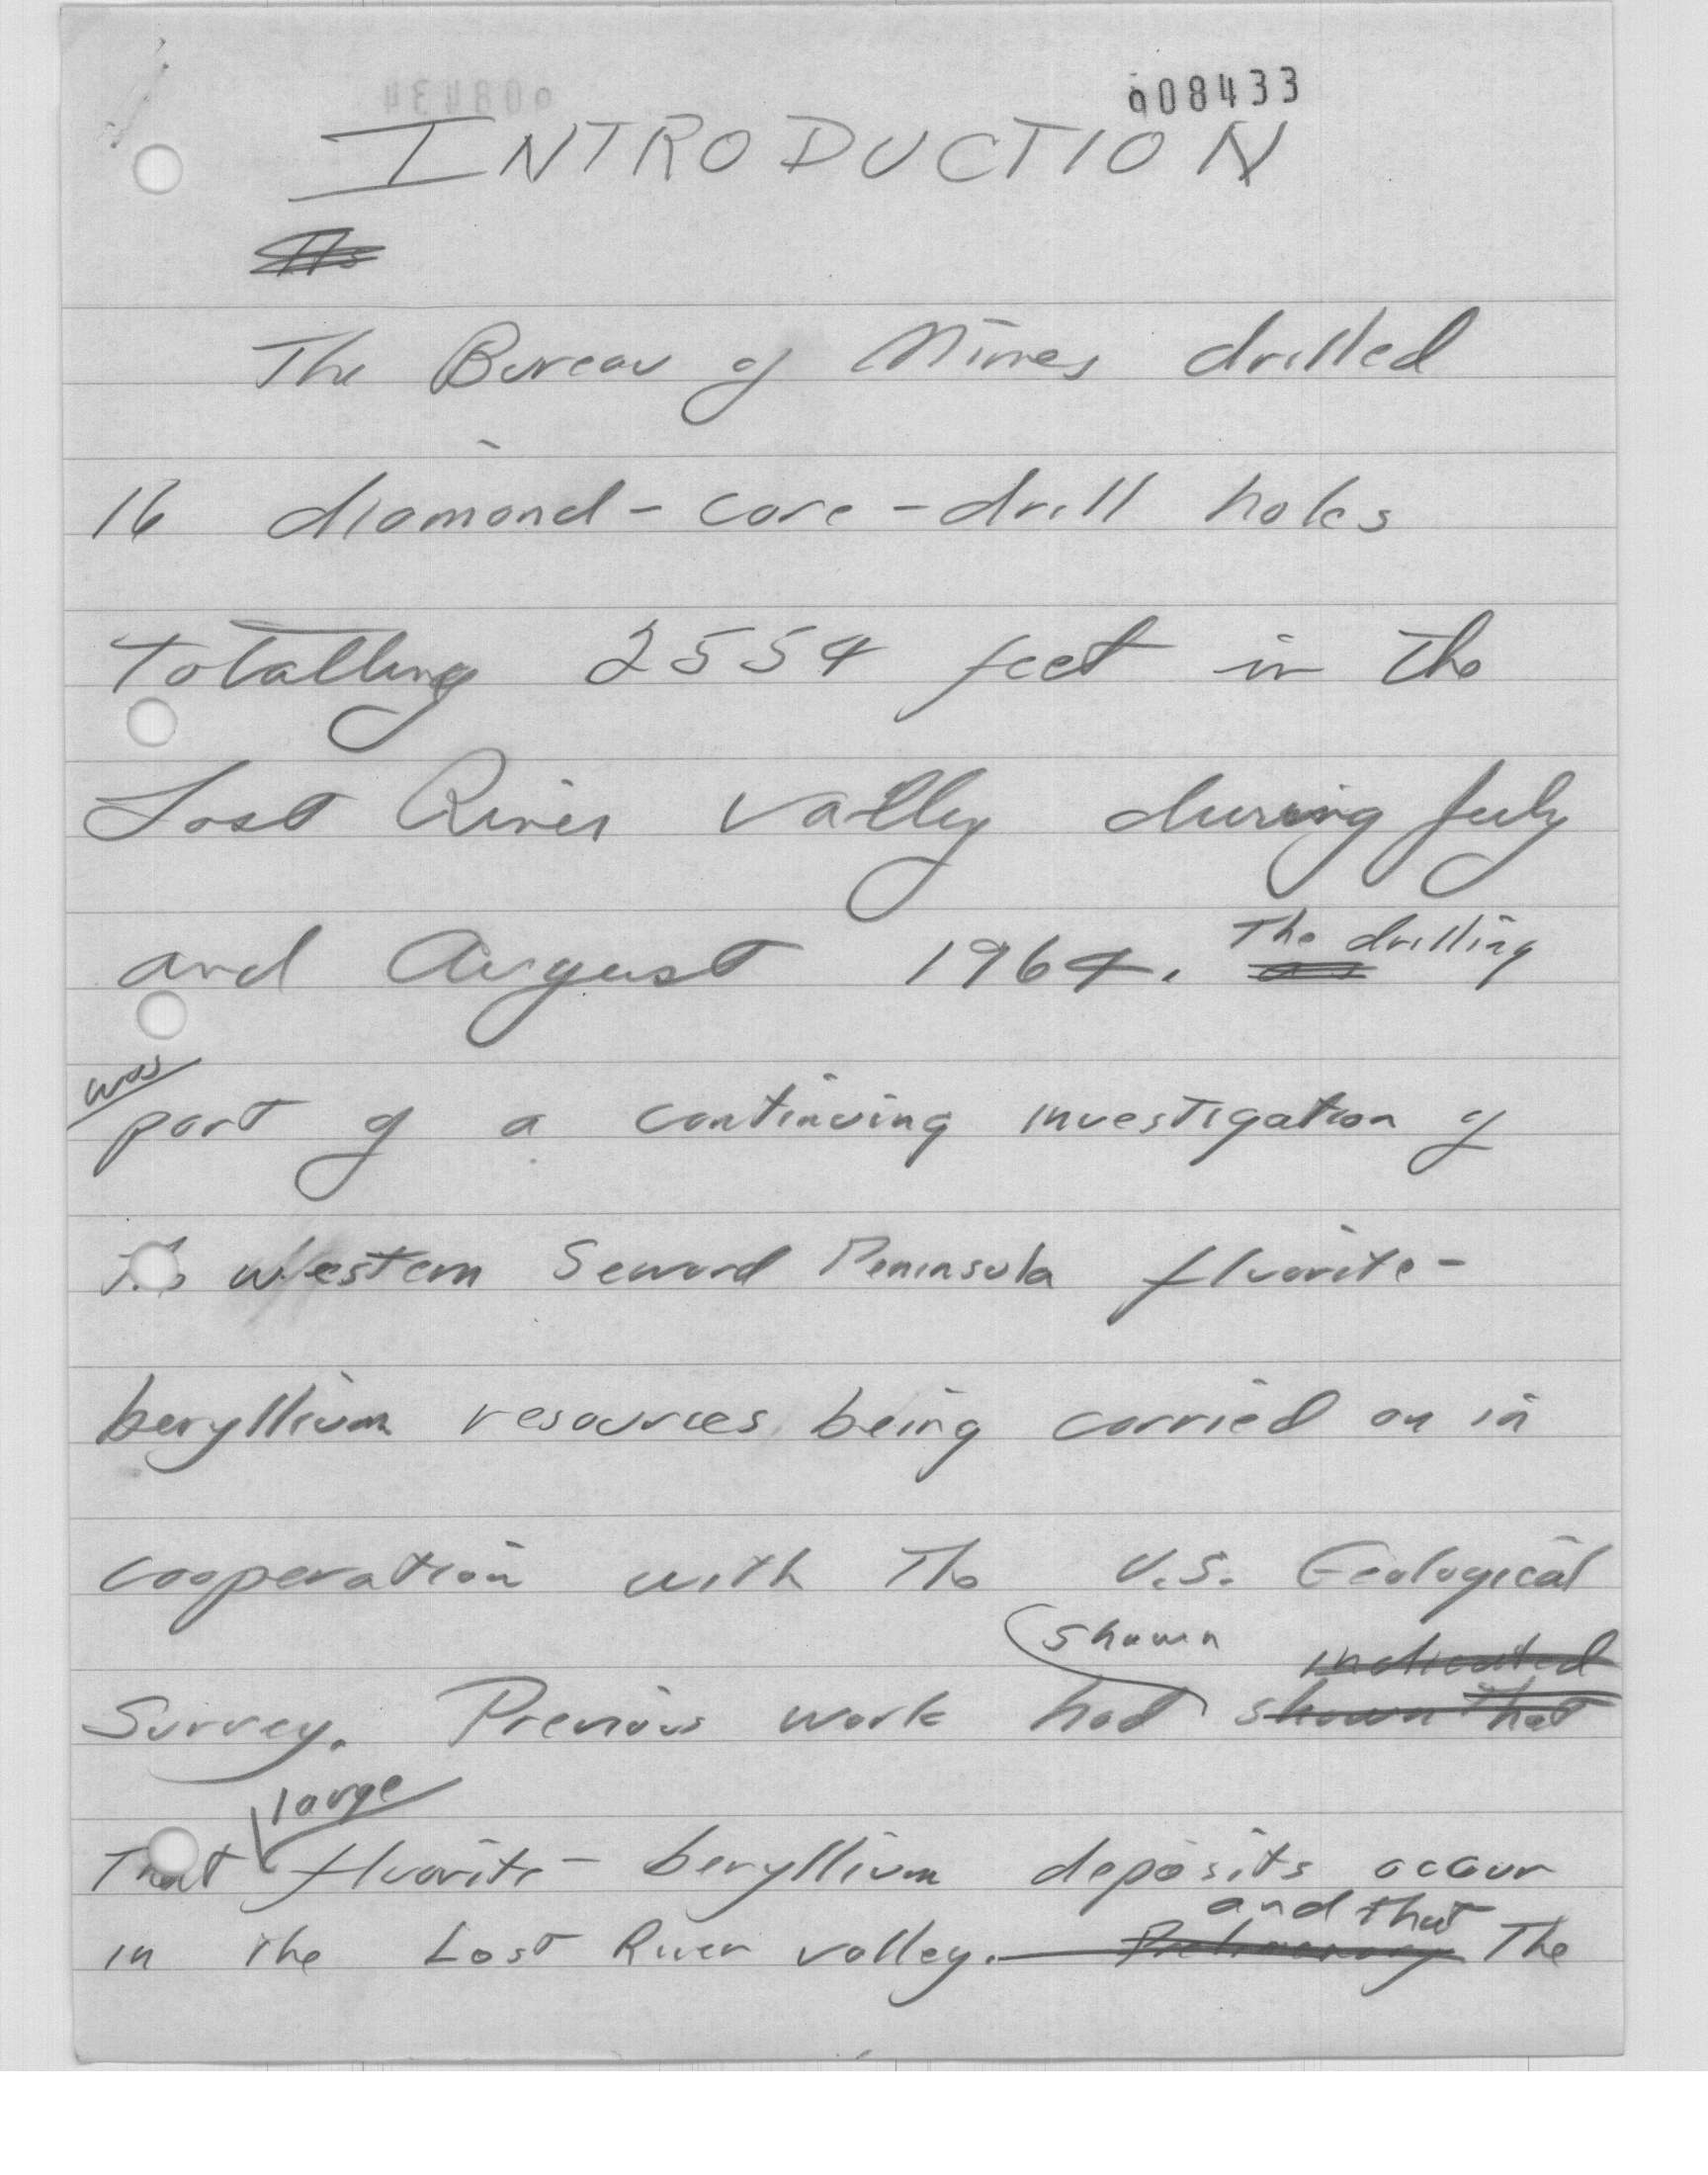 008433
INTRODUCTION
The Bureau of Mines drilled
16 diamond-core-drill holes
totalling 2554 feet in the
Lost River valley during July
and August 1964. The drilling
was
part of a continuing investigation of
the western Seward Peninsula fluorite-
beryllium resources being carried on in
cooperation with the U.S. Geological
shown indicated
Survey. Previous work had shown that
large
That fluorite-beryllium deposits occur
and that
in the Lost River valley. Preliminary The